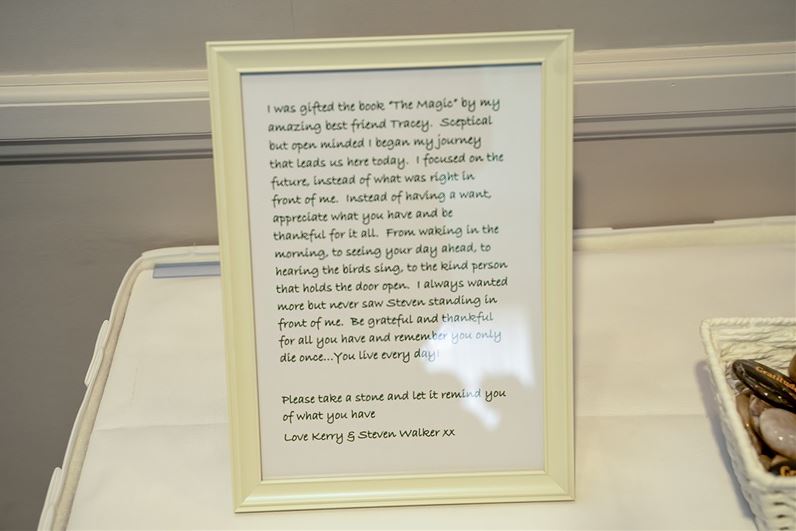 I was gifted the book "The Magic" by my
amazing best friend Tracey. Sceptical
but open minded I began my journey
that leads us here today. I focused on the
future, instead of what was right in
front of me. Instead of having a want,
appreciate what you have and be
thankful for it all. From waking in the
morning, to seeing your day ahead, to
hearing the birds sing, to the kind person
that holds the door open. I always wanted
more but never saw Steven standing in
front of me. Be grateful and thankful
for all you have and remember you only
die once...You live every day!
Please take a stone and let it remind you
of what you have
Love Kerry & Steven Walker xx
Gratitude